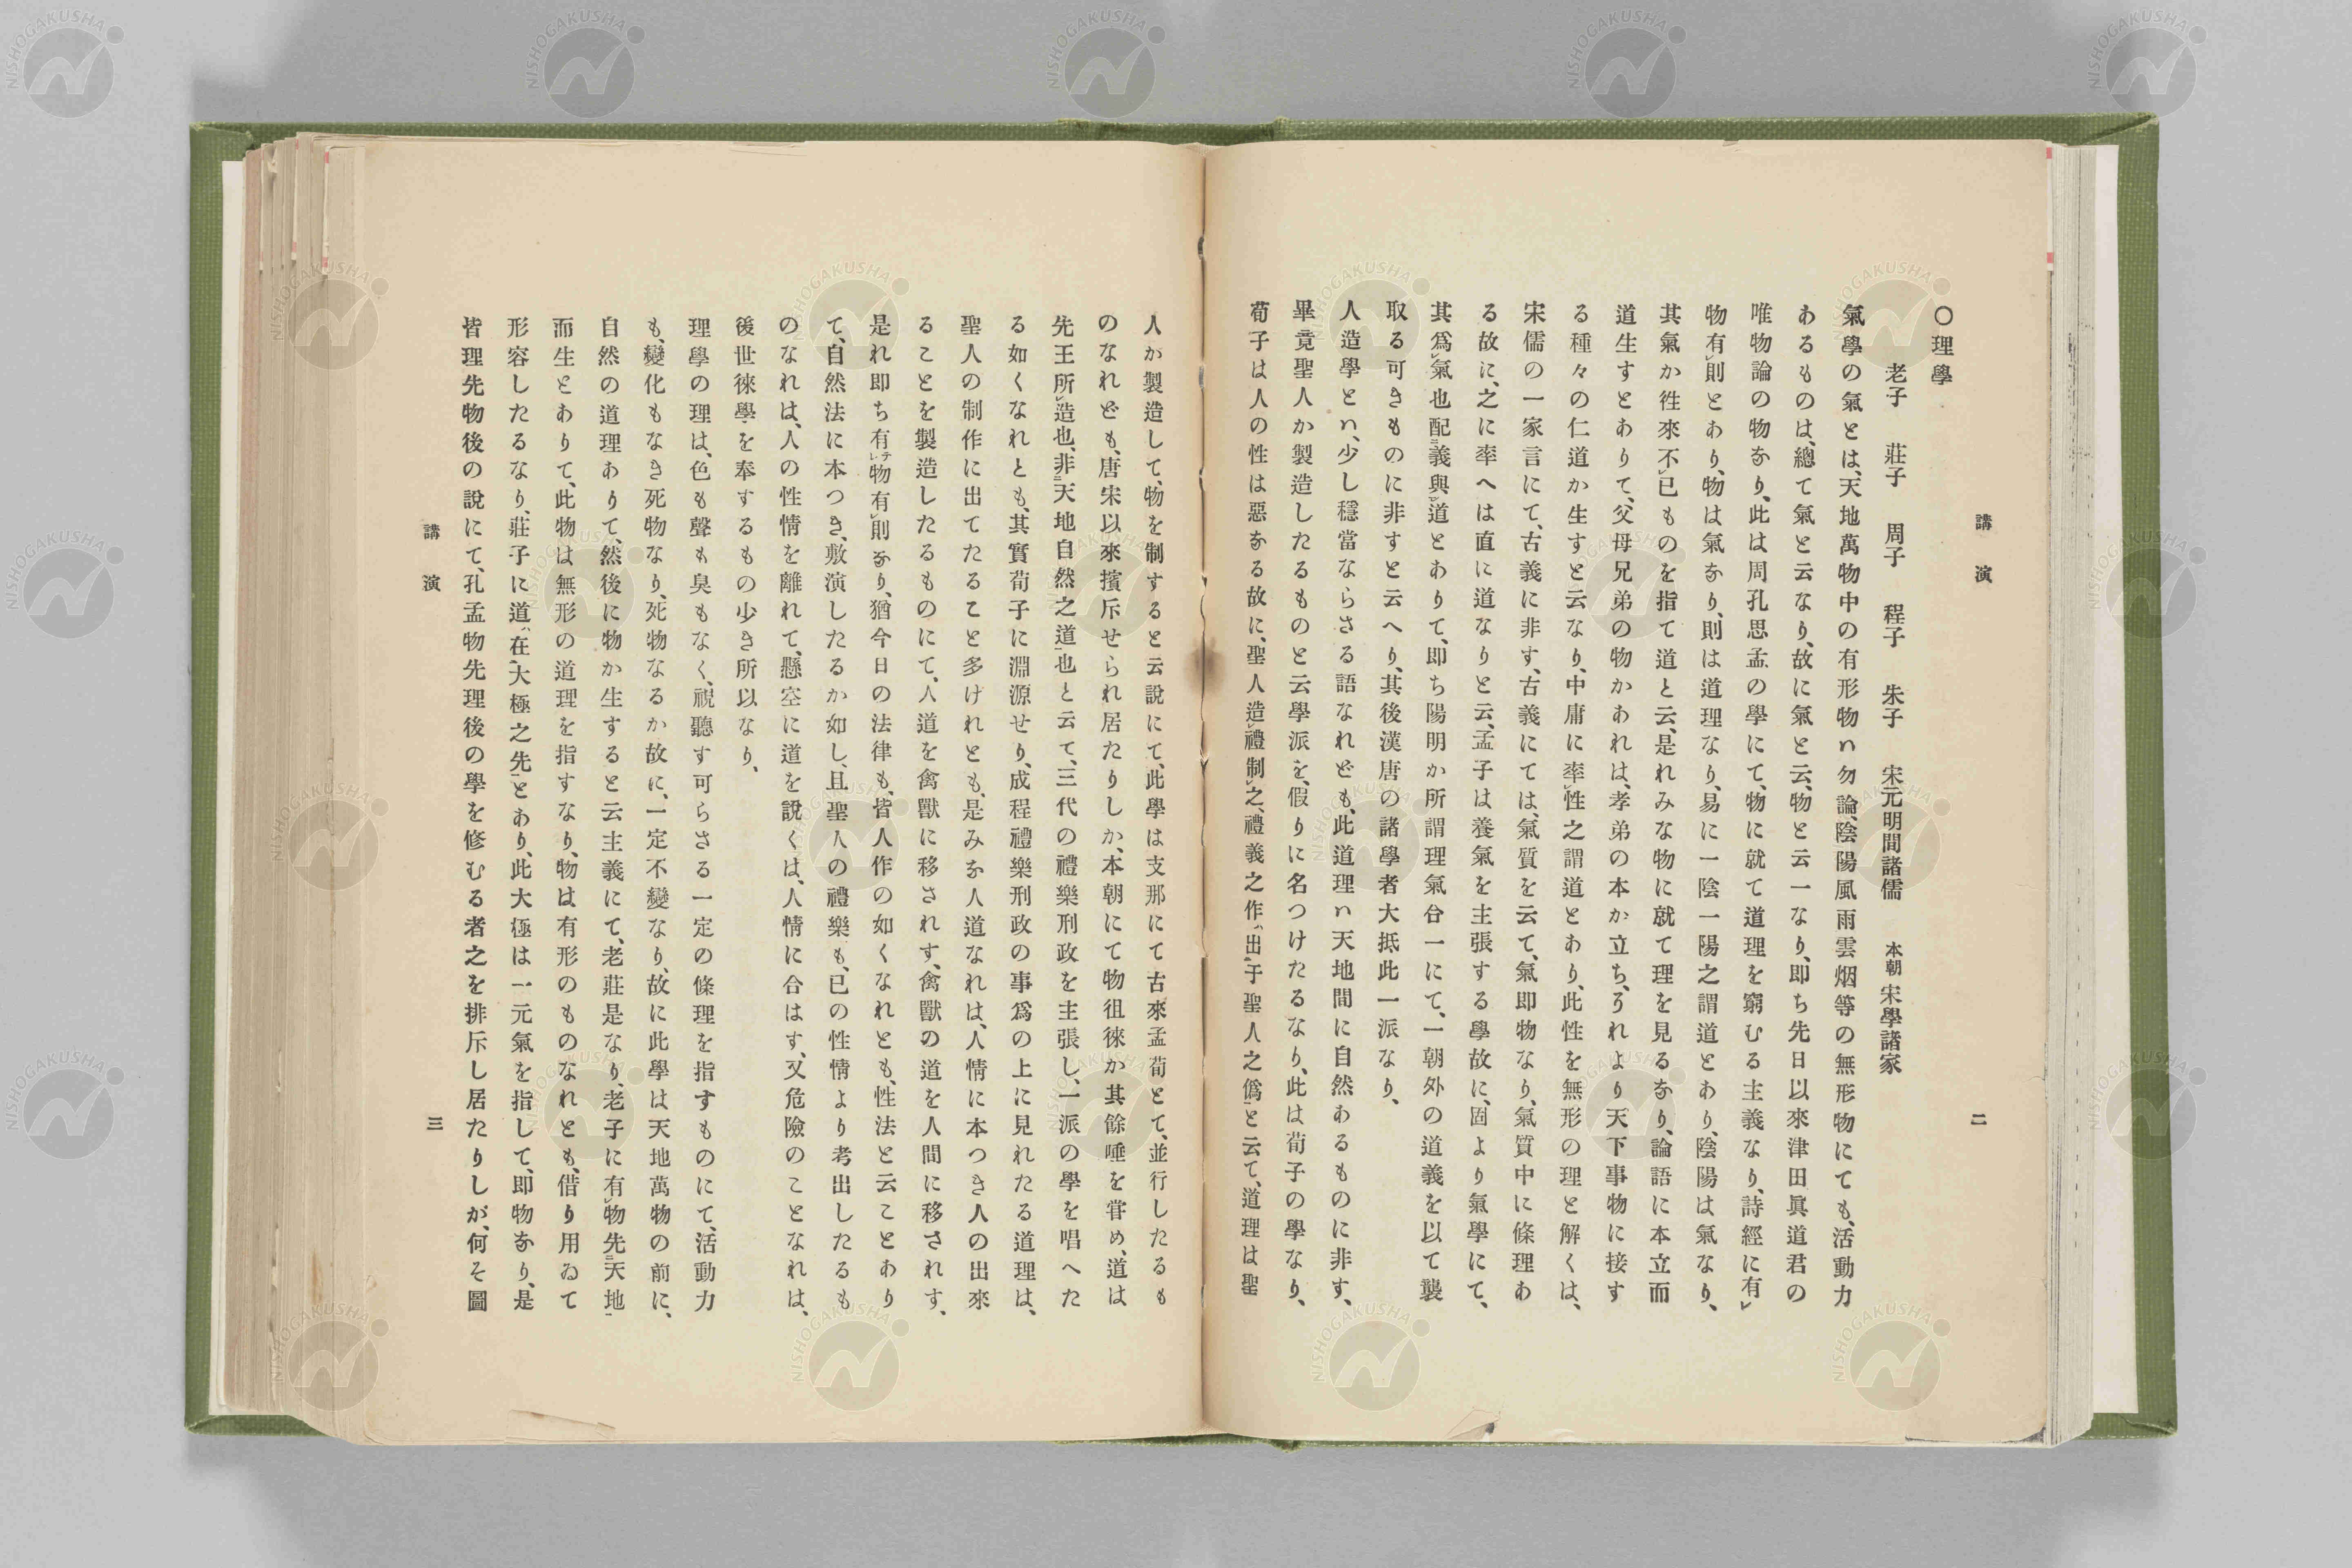 講演
二
〇理學
老子 莊子 周子 程子 朱子 宋元明間諸儒 本朝宋學諸家
氣學の氣とは、天地萬物中の有形物ハ勿論、陰陽風雨雲烟等の無形物にても、活動力
あるものは、總て氣と云なり、故に氣と云、物と云一なり、即ち先日以來津田眞道君の
唯物論の物なり、此は周孔思孟の學にて、物に就て道理を窮むる主義なり、詩經に有レ
物有レ則とあり、物は氣なり、則は道理なり、易に一陰一陽之謂道とあり、陰陽は氣なり、
其氣か徃來不レ已ものを指て道と云、是れみな物に就て理を見るなり、論語に本立而
道生すとありて、父母兄弟の物かあれは、孝弟の本か立ち、それより天下事物に接す
る種々の仁道か生すと云なり、中庸に率レ性之謂道とあり、此性を無形の理と解くは、
宋儒の一家言にて、古義に非す、古義にては、氣質を云て、氣即物なり、氣質中に條理あ
る故に、之に率へは直に道なりと云、孟子は養氣を主張する學故に、固より氣學にて、
其爲レ氣也配二義與一レ道とありて、即ち陽明か所謂理氣合一にて、一朝外の道義を以て襲
取る可きものに非すと云へり、其後漢唐の諸學者大抵此一派なり、
人造學とハ、少し穩當ならさる語なれども、此道理ハ天地間に自然あるものに非す、
畢竟聖人か製造したるものと云學派を、假りに名つけたるなり、此は荀子の學なり、
荀子は人の性は惡なる故に、聖人造レ禮制レ之、禮義之作ハ出二于聖人之僞一と云て、道理は聖
人か製造して、物を制すると云説にて、此學は支那にて古來孟荀とて、並行したるも
のなれども、唐宋以來擯斥せられ居たりしか、本朝にて物徂徠か其餘唾を甞め、道は
先王所レ造也、非二天地自然之道一也と云て、三代の禮樂刑政を主張し、一派の學を唱へた
る如くなれとも、其實荀子に淵源せり、成程禮樂刑政の事爲の上に見れたる道理は、
聖人の制作に出てたること多けれとも、是みな人道なれは、人情に本つき人の出來
ることを製造したるものにて、人道を禽獸に移されす、禽獸の道を人間に移されす、
是れ即ち有レテ物有レ則なり、猶今日の法律も、皆人作の如くなれとも、性法と云ことあり
て、自然法に本つき、敷演したるか如し、且聖人の禮樂も、已の性情より考出したるも
のなれは、人の性情を離れて、懸空に道を説くは、人情に合はす、又危險のことなれは、
後世徠學を奉するもの少き所以なり、
理學の理は、色も聲も臭もなく、視聽す可らさる一定の條理を指すものにて、活動力
も、變化もなき死物なり、死物なるか故に、一定不變なり、故に此學は天地萬物の前に、
自然の道理ありて、然後に物か生すると云主義にて、老莊是なり、老子に有レ物先二天地一
而生とありて、此物は無形の道理を指すなり、物は有形のものなれとも、借り用ゐて
形容したるなり、莊子に道ハ在二大極之先一とあり、此大極は一元氣を指して、即物なり、是
皆理先物後の説にて、孔孟物先理後の學を修むる者之を排斥し居たりしが、何そ圖
講演
三